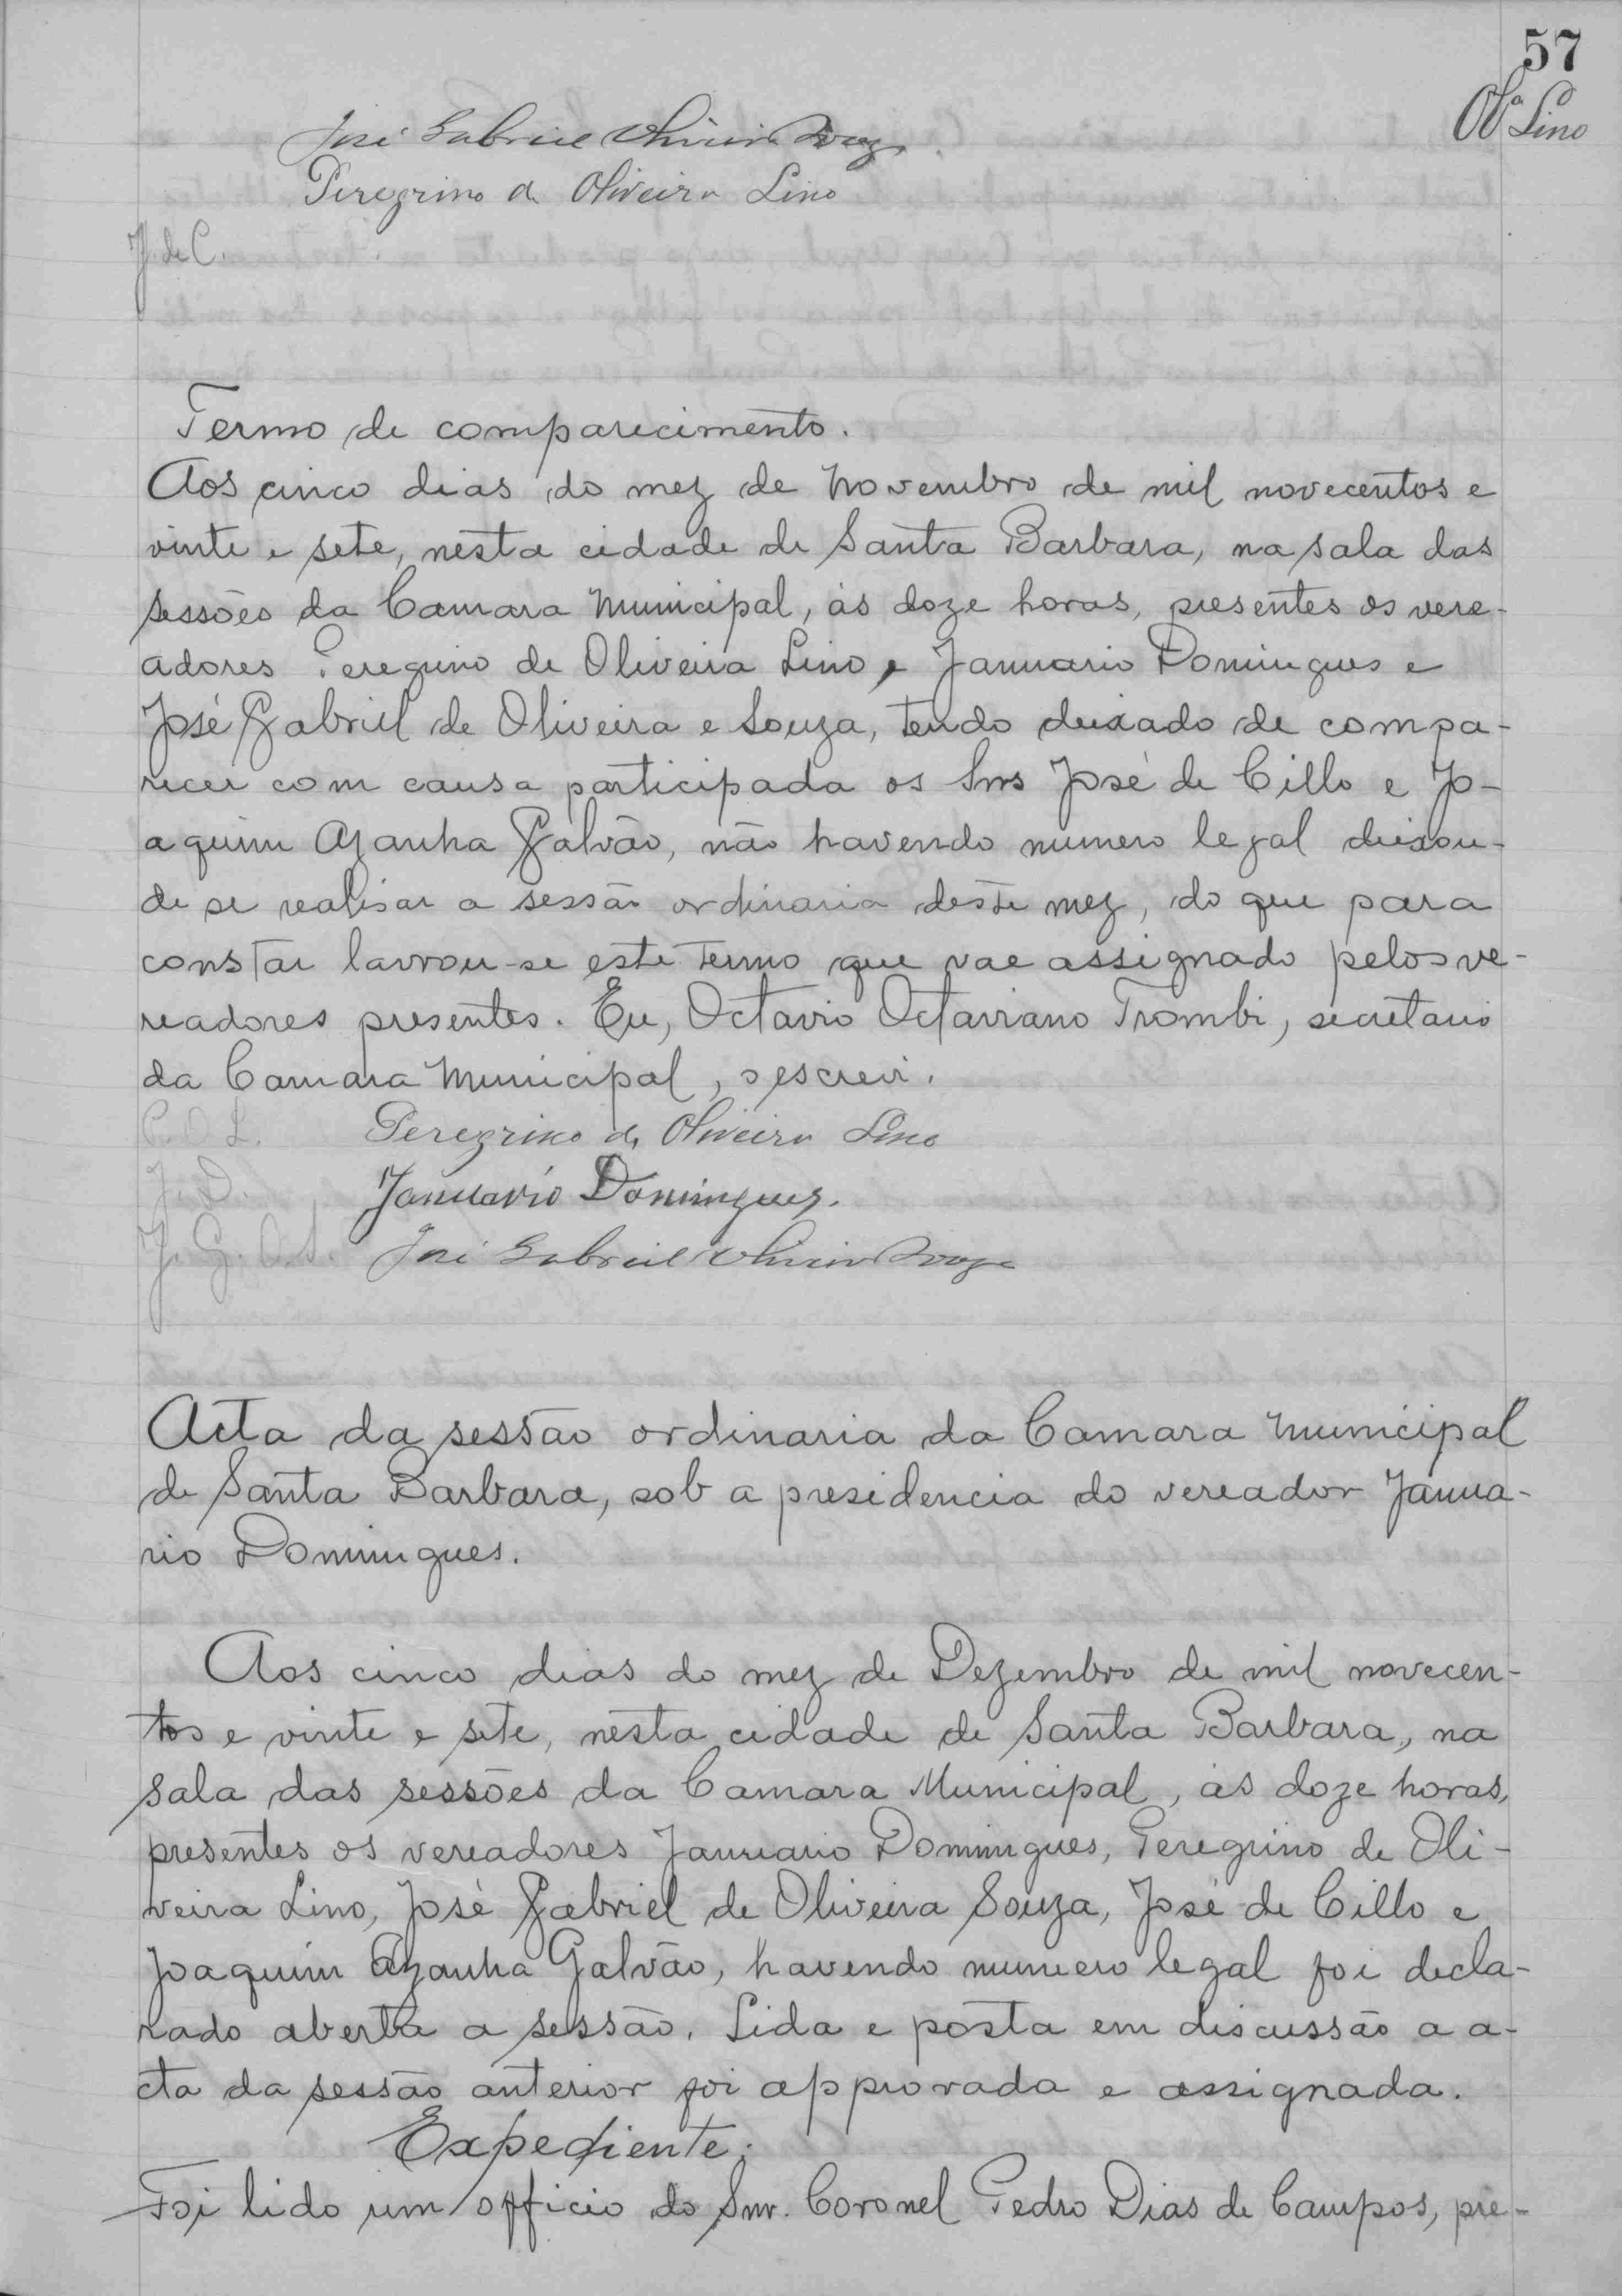 57
Olª Lino
José Gabriel Oliveira Souza
Peregrino de Oliveira Lino
J. de C.
Termo de comparecimento.
Aos cinco dias do mez de Novembro de mil novecentos e
vinte e sete, nesta cidade de Santa Barbara, na sala das
sessões da Camara Municipal, ás doze horas, presentes os vere-
adores Peregrino de Oliveira Lino, Januario Domingues e
José Gabriel de Oliveira e Souza, tendo deixado de compa-
recer com causa participada os Snrs José de Cillo e Jo-
aquim Azanha Galvão, não havendo numero legal deixou-
de se realisar a sessão ordinaria deste mez, do que para
constar lavrou-se este termo que vae assignado pelos ve-
readores presentes. Eu, Octavio Octaviano Trombi, secretario
da Camara Municipal, o escrevi.
P. O L. Peregrino de Oliveira Lino
J. D. Januario Domingues.
J. G. O. S. José Gabriel Oliveira Souza
Acta da sessão ordinaria da Camara Municipal
de Santa Barbara, sob a presidencia do vereador Janua-
rio Domingues.
Aos cinco dias do mez de Dezembro de mil novecen-
tos e vinte e sete, nesta cidade de Santa Barbara, na
sala das sessões da Camara Municipal, ás doze horas,
presentes os vereadores Januario Domingues, Peregrino de Oli-
veira Lino, José Gabriel de Oliveira Souza, José de Cillo e
Joaquim Azanha Galvão, havendo numero legal foi decla-
rado aberta a sessão. Lida e posta em discussão a a-
cta da sessão anterior foi approvada e assignada.
Expediente:
Foi lido um officio do Snr. Coronel Pedro Dias de Campos, pre-